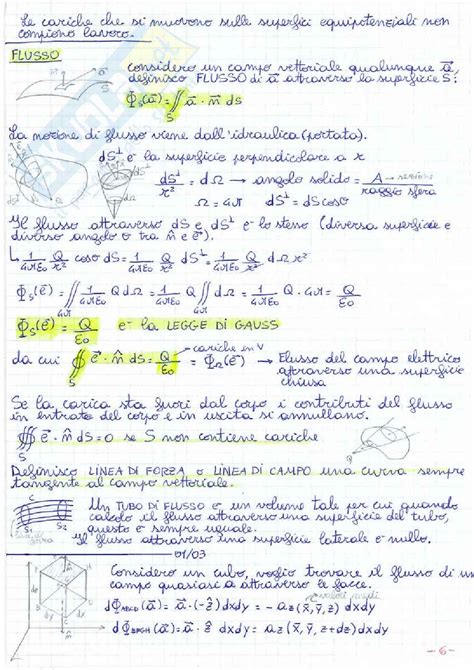 Le cariche che si muovono sulle superfici equipotenziali non
compiono lavoro.
FLUSSO
considero un campo vettoriale qualunque a⃗,
definisco FLUSSO di a⃗ attraverso la superficie S:
Φs(a⃗) = ∬ a⃗ · m̂ dS
S
La nozione di flusso viene dall'idraulica (portata).
dS⊥ è la superficie perpendicolare a r
dS⊥/r² = dΩ → angolo solido = A → sezione / raggio sfera
dS⊥ = dS cosσ
Il flusso attraverso dS e dS⊥ è lo stesso (diversa superficie e
diverso angolo σ tra m̂ e e⃗).
1/4πε₀ Q/r² cosσ dS = 1/4πε₀ Q/r² dS⊥ = 1/4πε₀ Q/r² dΩ r²
Φs(e⃗) = ∬ 1/4πε₀ Q dΩ = 1/4πε₀ Q ∬ dΩ = 1/4πε₀ Q · 4π
Φs(e⃗) = Q/ε₀ è la LEGGE DI GAUSS
cariche in V
da cui ∯ e⃗ · m̂ dS = Q/ε₀ = ΦΩ(e⃗) → Flusso del campo elettrico
attraverso una superficie
chiusa
Se la carica sta fuori dal corpo i contributi del flusso
in entrata del corpo e in uscita si annullano.
∯ e⃗ · m̂ dS = 0 se S non contiene cariche
Definisco LINEA DI FORZA o LINEA DI CAMPO una curva sempre
tangente al campo vettoriale.
Un TUBO DI FLUSSO è un volume tale per cui quando
calcolo il flusso attraverso una superficie del tubo,
questo è sempre uguale.
S1 S2
Il flusso attraverso una superficie laterale è nullo.
01/03
Considero un cubo, voglio trovare il flusso di un
campo qualsiasi a⃗ attraverso le facce.
valori medi
dΦABCD(a⃗) = a⃗ · (-ẑ) dxdy = - az(x̄, ȳ, z) dxdy
dΦEFGH(a⃗) = a⃗ · (ẑ) dxdy = az(x̄, ȳ, z+dz) dxdy
-6-